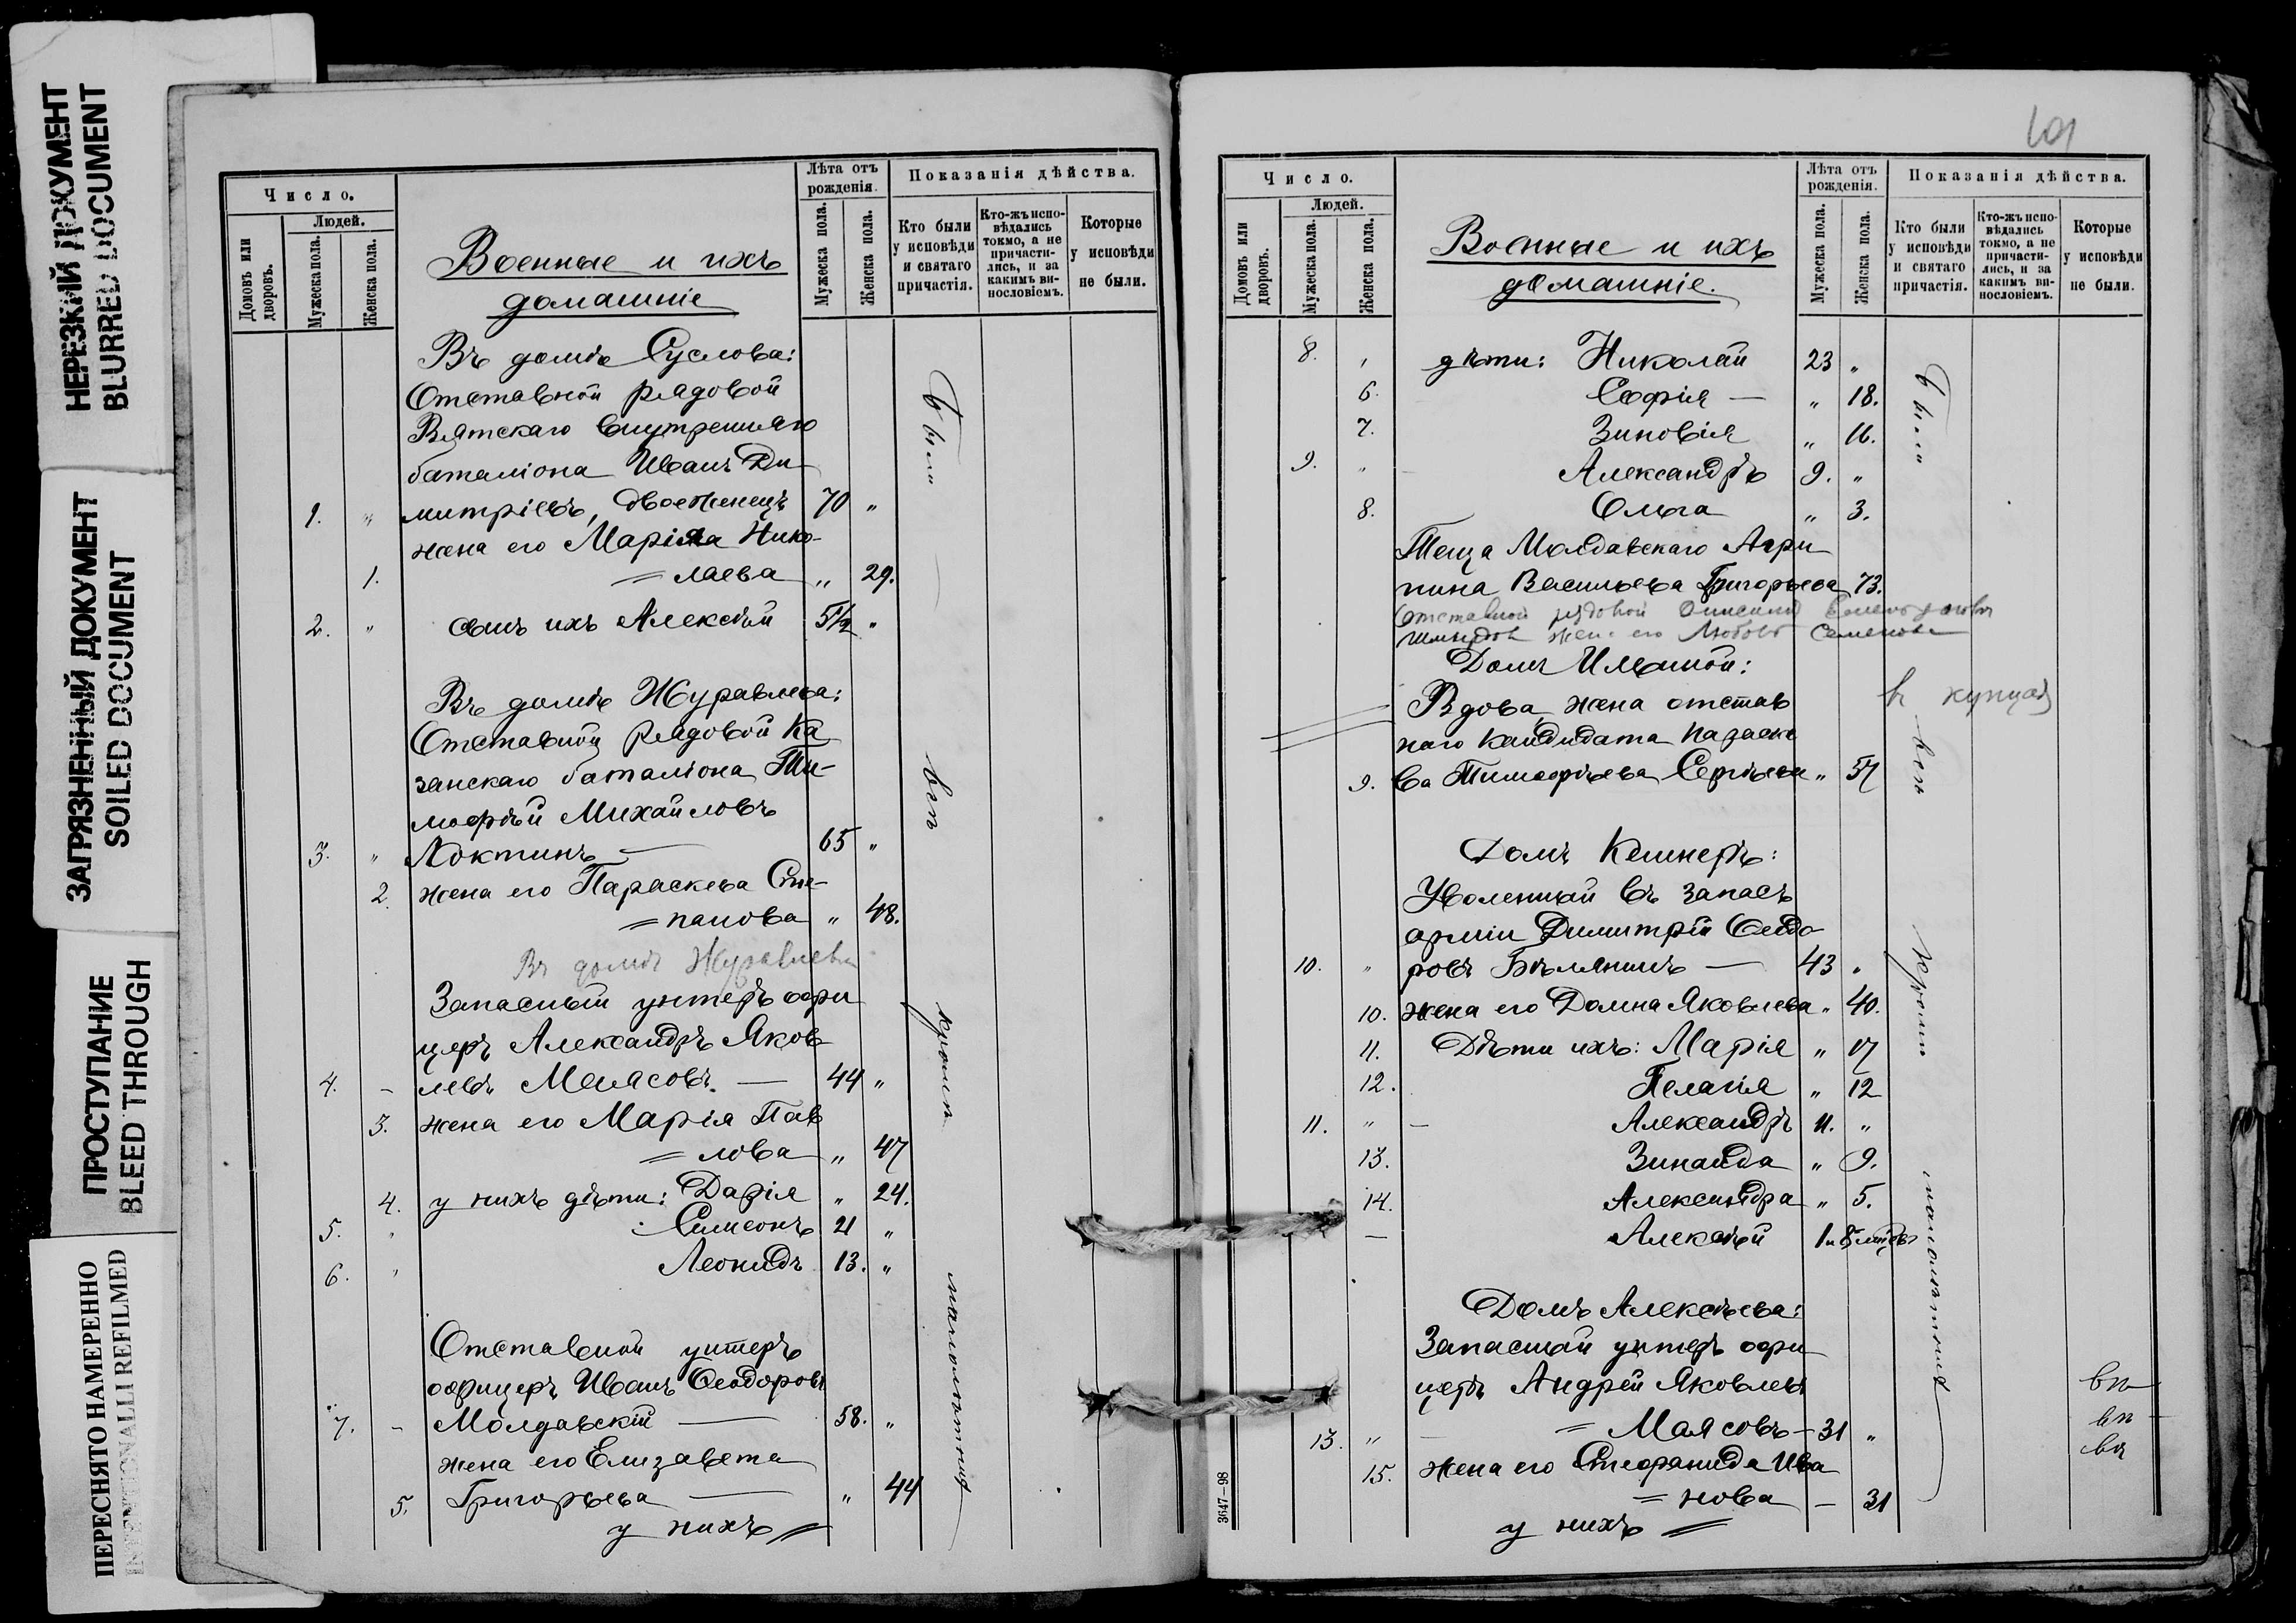 НЕРЕЗКИЙ ДОКУМЕНТ
BLURRED DOCUMENT
ЗАГРЯЗНЕННЫЙ ДОКУМЕНТ
SOILED DOCUMENT
ПРОСТУПАНИЕ
BLEED THROUGH
ПЕРЕСНЯТО НАМЕРЕННО
INTENTIONALLI REFILMED
Число.
Людей.
Домовъ или дворовъ.
Мужеска пола.
Женска пола.
Военные и ихъ
домашніе
Лѣта отъ рожденія.
Мужеска пола.
Женска пола.
Показанія дѣйства.
Кто были у исповѣди и святаго причастія.
Кто-жъ исповѣдались токмо, а не причастились, и за какимъ винословіемъ.
Которые у исповѣди не были.
Въ домѣ Суслова:
Отставной рядовой
Вятскаго внутренняго
баталіона Иванъ Ди
1. „ митріевъ, двоеженецъ 70 „
жена его Марія Нико-
1. = лаева „ 29.
2. „ сынъ ихъ Алексѣй 5½ „
Въ домѣ Журавлева:
Отставной рядовой Ка
занскаго баталіона Ти-
моѳѣй Михайловъ
3. „ Локтинъ — 65 „
2. жена его Параскева Сте-
= панова „ 48.
Въ домѣ Журавлева
Запасный унтеръ офи
церъ Александръ Яков
4. - левъ Маясовъ. — 44 „
3. жена его Марія Пав
= лова „ 47
4. у нихъ дѣти: Дарія „ 24.
5. „ Симеонъ 21 „
6. „ Леонидъ 13. „
Отставной унтеръ
офицеръ Иванъ Ѳеодоровъ
7. - Молдавскій — 58. „
жена его Елизавета
5. Григорьева — „ 44
у нихъ =
были
всѣ
кромѣ
малолѣтнихъ
101
Число.
Людей.
Домовъ или дворовъ.
Мужеска пола.
Женска пола.
Военные и ихъ
домашніе.
Лѣта отъ рожденія.
Мужеска пола.
Женска пола.
Показанія дѣйства.
Кто были у исповѣди и святаго причастія.
Кто-жъ исповѣдались токмо, а не причастились, и за какимъ винословіемъ.
Которые у исповѣди не были.
8. „ дѣти: Николай 23 „
6. Софія — „ 18.
7. Зиновія „ 16.
9. „ Александръ 9. „
8. Ольга „ 3.
Теща Молдавскаго Агри
пина Васильева Григорьева 73.
Отставной рядовой
жена его Любовь Семенова
Домъ
Вдова, жена отстав
наго кандидата Параске
9. ва Тимоѳѣева Сергѣева „ 57
къ купцамъ
Домъ Кешнеръ:
Уволенный въ запасъ
арміи Димитрій Ѳеодо
10. „ ровъ Бѣлянинъ — 43 „
10. жена его Домна Яковлева „ 40.
11. Дѣти ихъ: Марія „ 17
12. Пелагія „ 12
11. „ - Александръ 11. „
13. Зинаида „ 9.
14. Александра „ 5.
— Алексѣй 1 и 8 мѣсяцевъ
Домъ Алексѣева:
Запасный унтеръ офи
церъ Андрей Яковлевъ
13. „ = Маясовъ — 31 „
15. жена его Стефанида Ива
= нова — 31
у нихъ =
были
всѣ
кромѣ
малолѣтнихъ
вп
вп
вп
3647—98